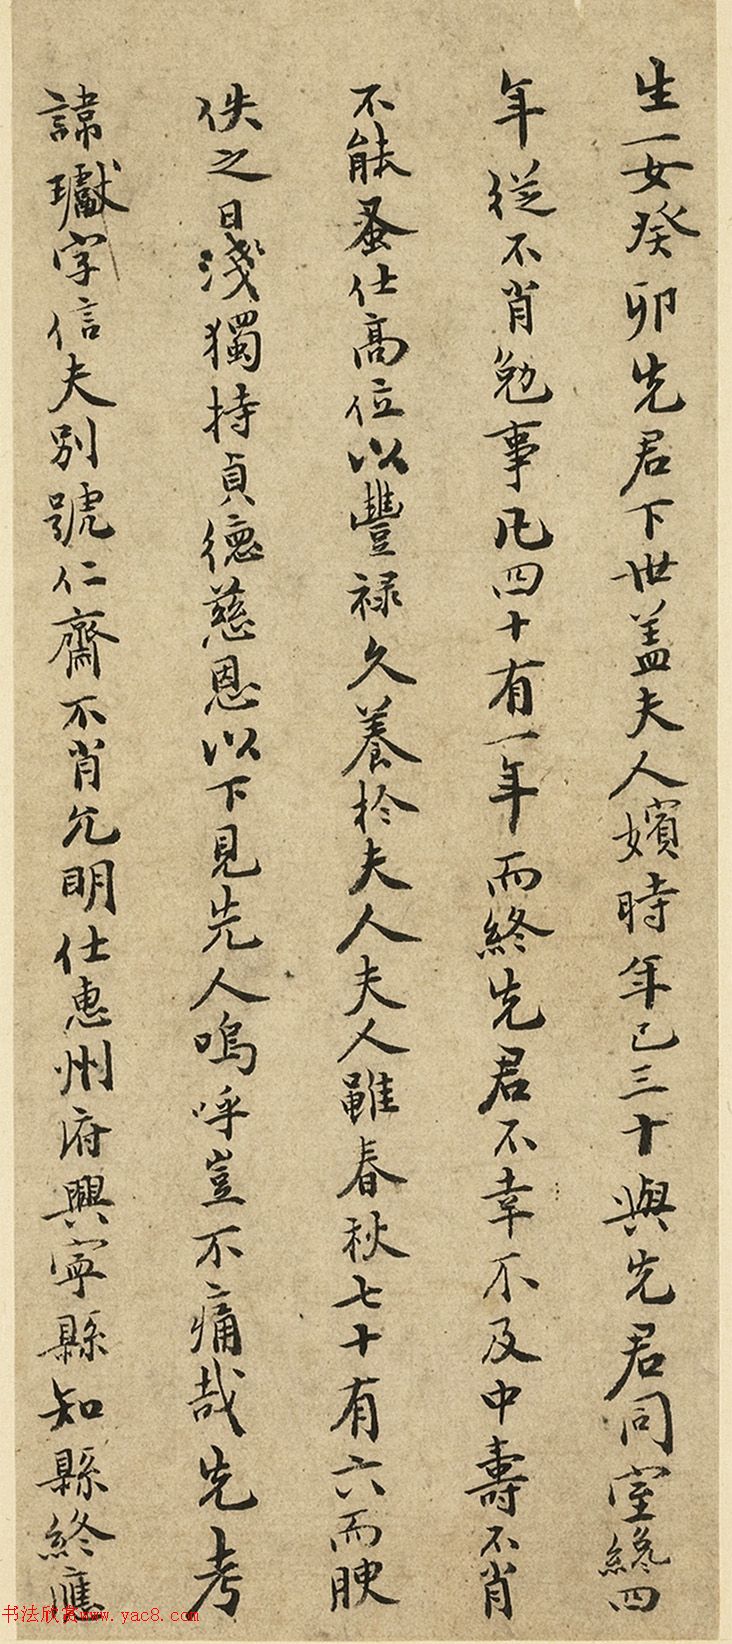 生一女癸卯先君下世盖夫人嬪時年已三十與先君同室纔四
年從不肖勉事凡四十有一年而終先君不幸不及中壽不肖
不能蚤仕高位以豐禄久養於夫人夫人雖春秋七十有六而腴
佚之日淺獨持貞德慈恩以下見先人嗚呼豈不痛哉先考
諱瓛字信夫别號仁齋不肖允明仕惠州府興寧縣知縣終應
书法欣赏www.yac8.com